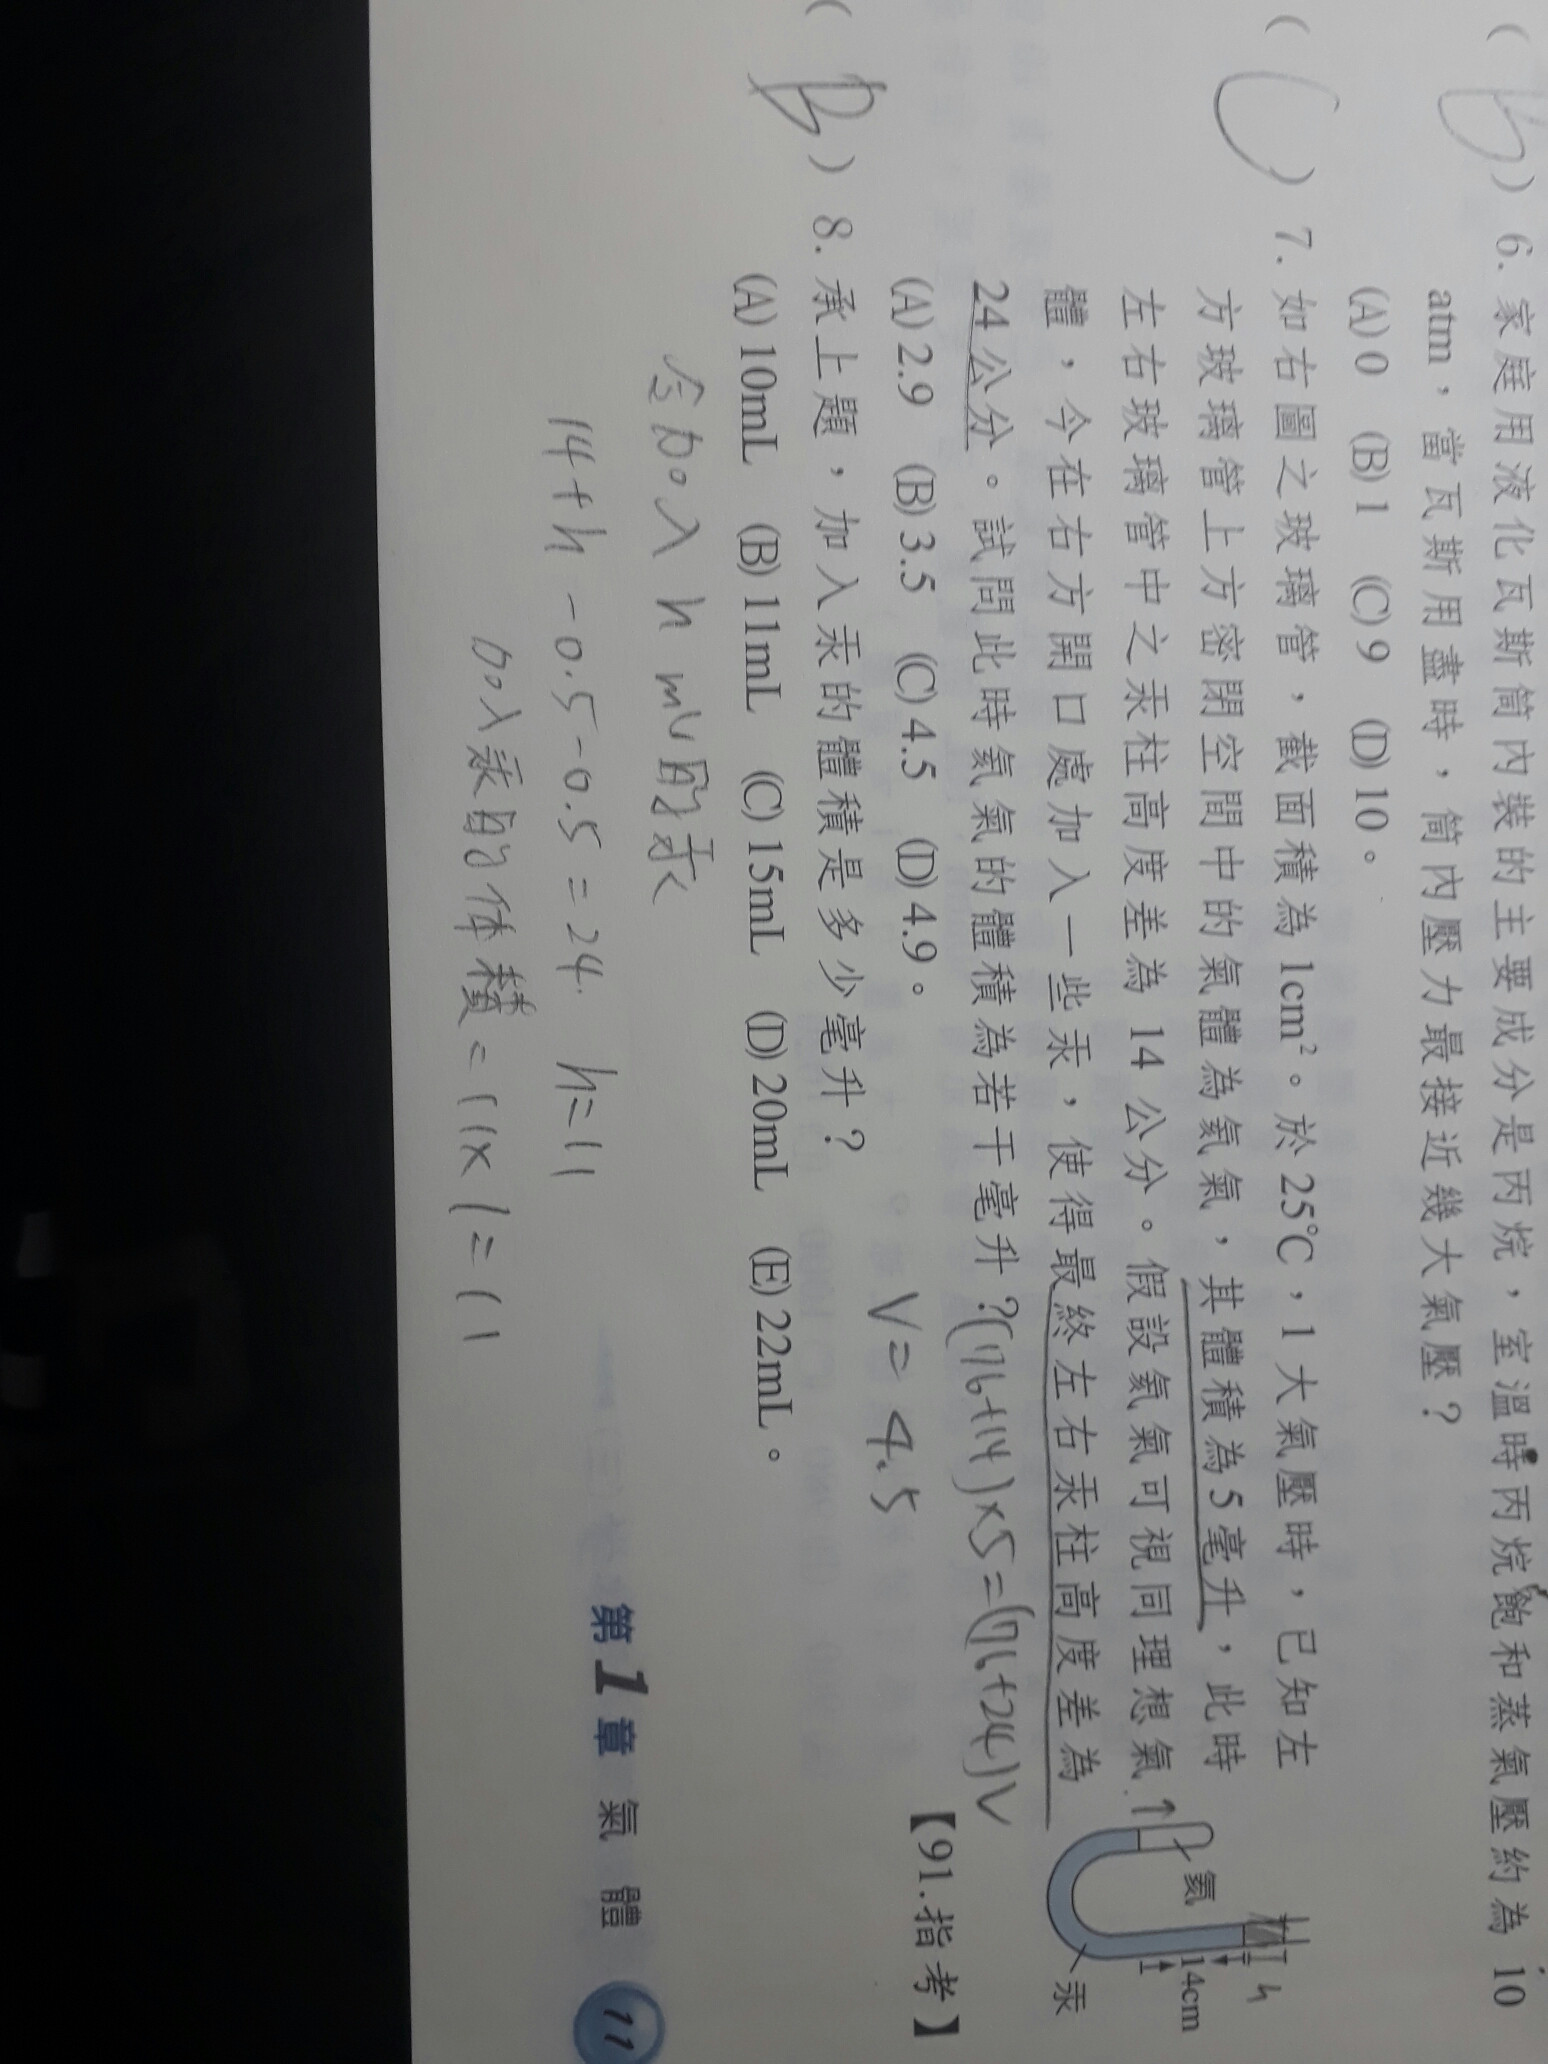 ( B ) 6. 家庭用液化瓦斯筒內裝的主要成分是丙烷，室溫時丙烷飽和蒸氣壓約為 10
atm，當瓦斯用盡時，筒內壓力最接近幾大氣壓？
(A) 0 (B) 1 (C) 9 (D) 10。
( C ) 7. 如右圖之玻璃管，截面積為 1cm²。於 25℃，1 大氣壓時，已知左
方玻璃管上方密閉空間中的氣體為氦氣，其體積為 5 毫升，此時
左右玻璃管中之汞柱高度差為 14 公分。假設氦氣可視同理想氣
體，今在右方開口處加入一些汞，使得最終左右汞柱高度差為
24 公分。試問此時氦氣的體積為若干毫升？(76+14)×5=(76+24)V
(A) 2.9 (B) 3.5 (C) 4.5 (D) 4.9。
V = 4.5
【91.指考】
氦
14cm
h
汞
( B ) 8. 承上題，加入汞的體積是多少毫升？
(A) 10mL (B) 11mL (C) 15mL (D) 20mL (E) 22mL。
令加入 h mL的汞
14+h -0.5-0.5 = 24. h=11
加入汞的体積 = 11×1=11
第1章 氣體 11